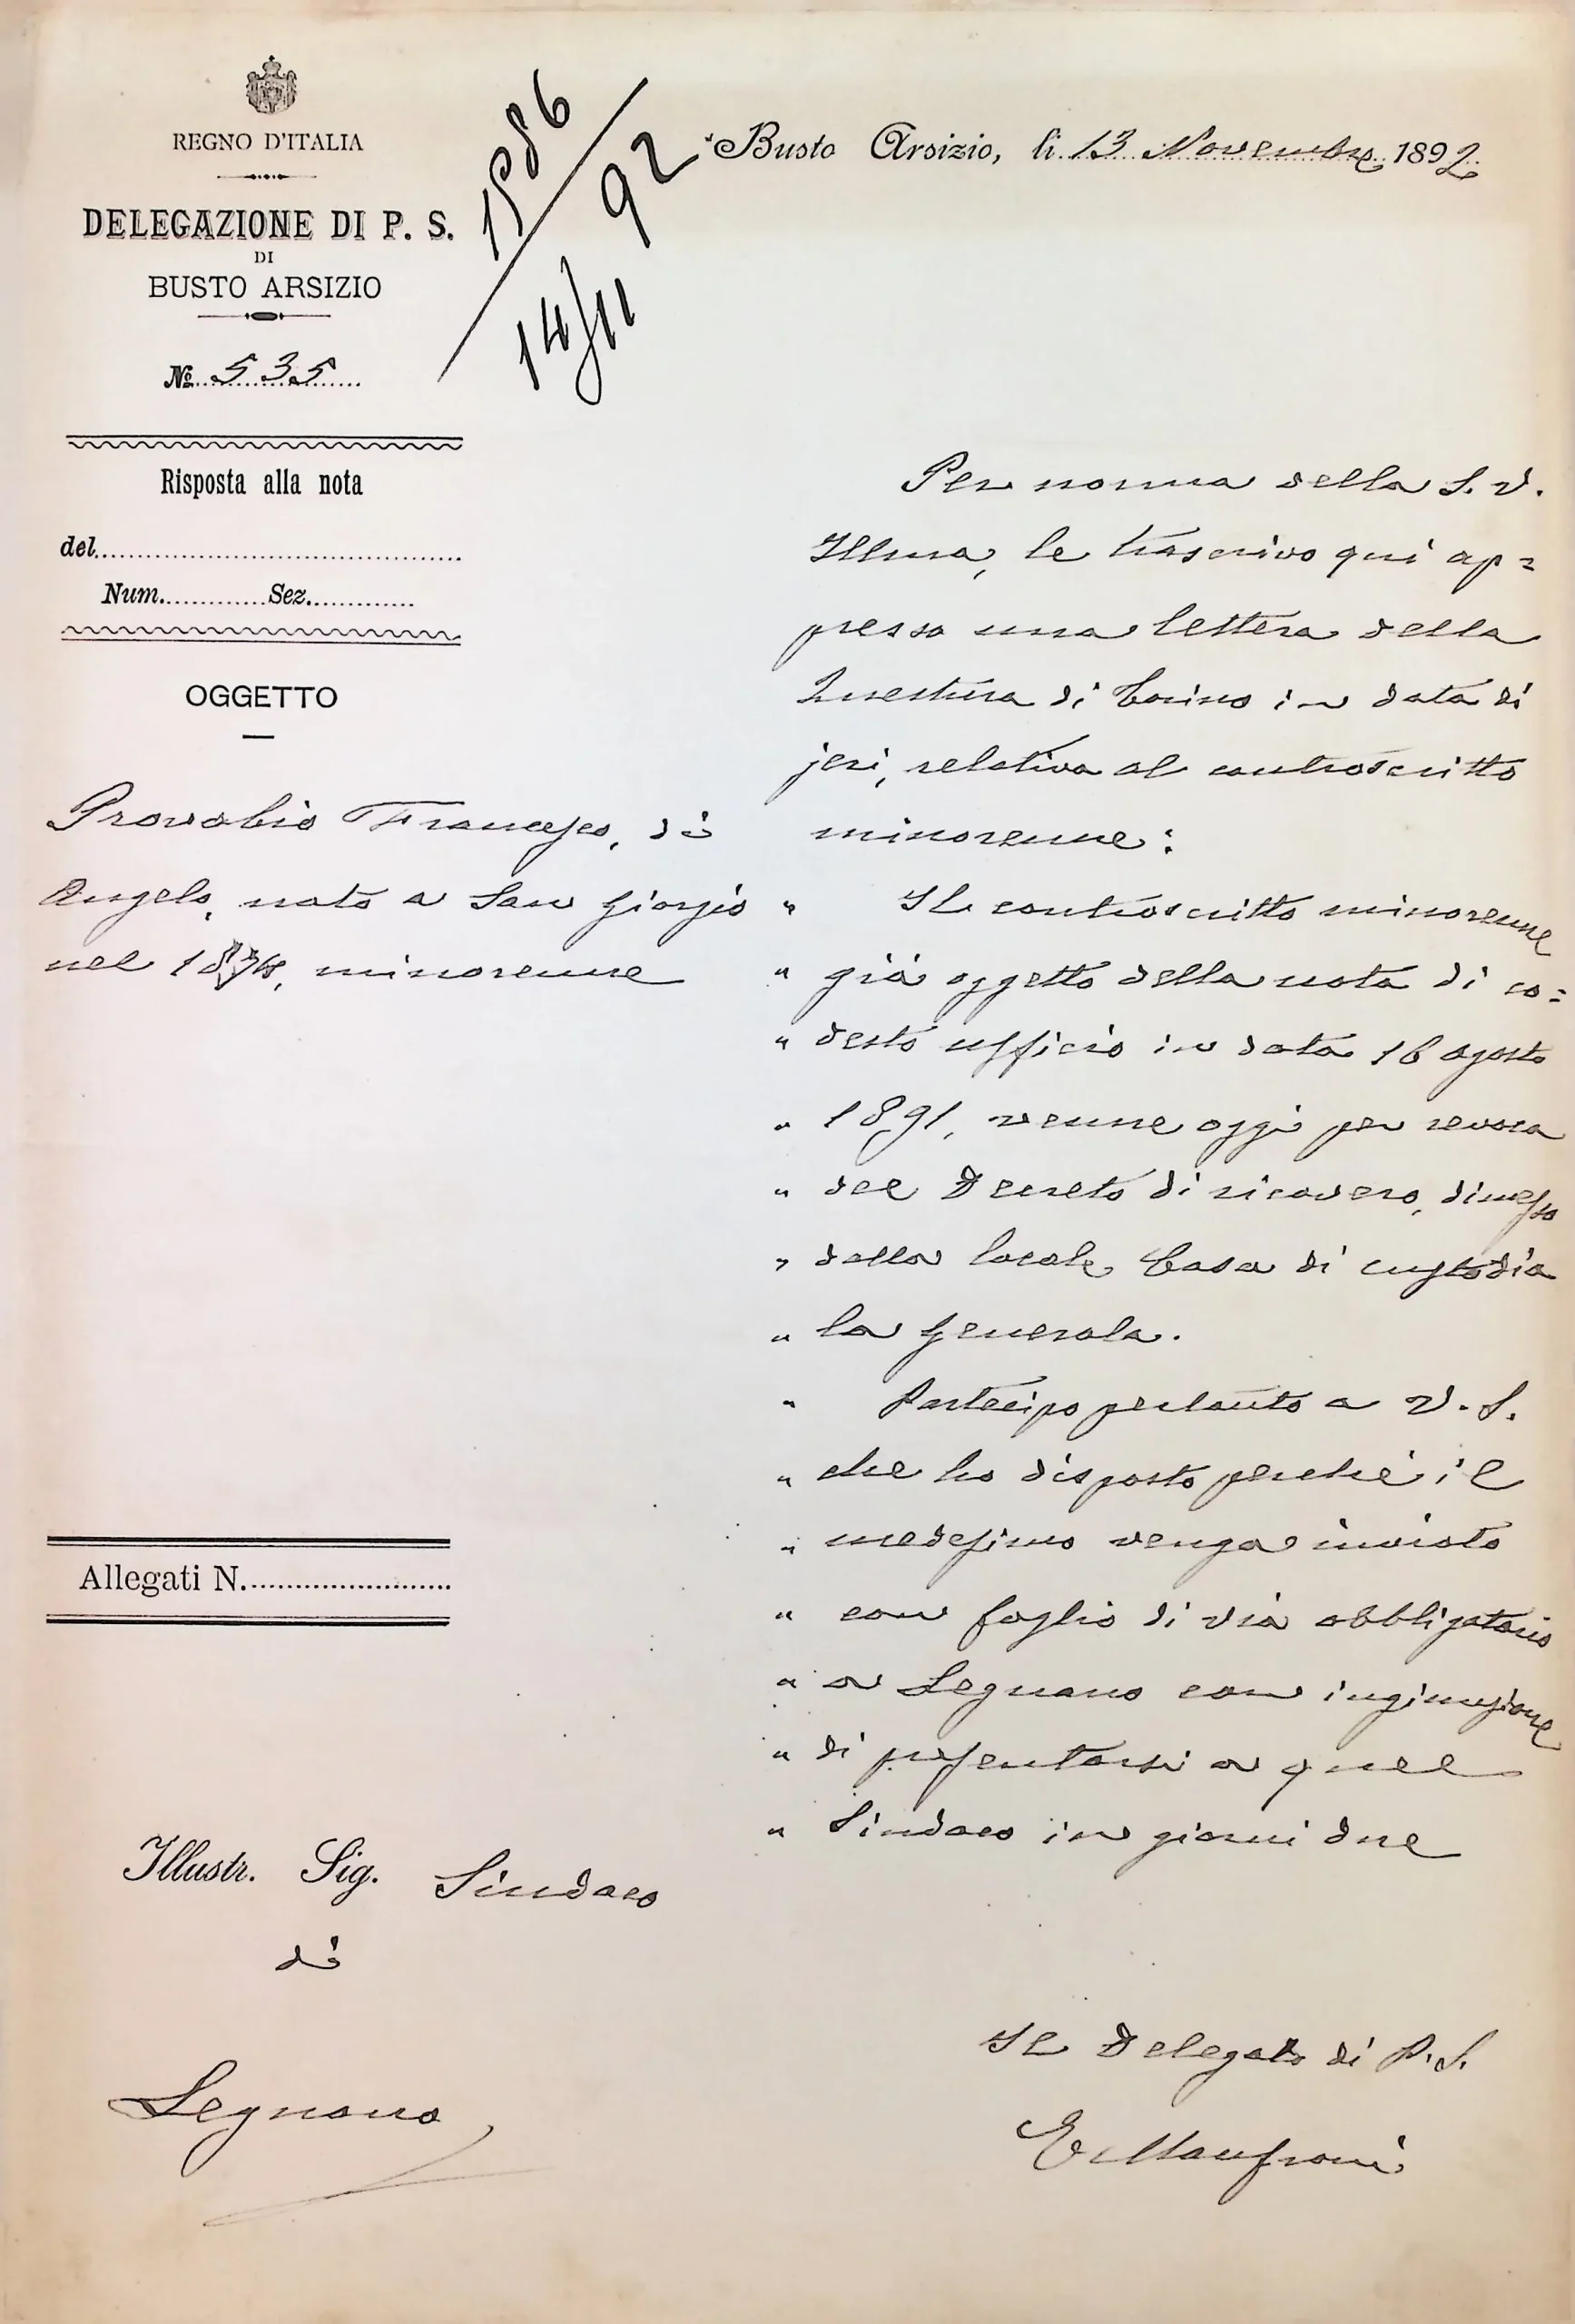 REGNO D'ITALIA
DELEGAZIONE DI P. S.
DI
BUSTO ARSIZIO
№ 535
Risposta alla nota
del
Num. Sez.
OGGETTO
Provabio Francesco, di
Angelo, nato a San Giorgio
nel 187, minorenne
Allegati N.
Illustr. Sig. Sindaco
di
Legnano
1586
92
14/11
Busto Arsizio, li 13 Novembre 1892
Per norma della S. V.
Illma, le trascrivo qui ap=
presso una lettera della
Questura di Torino in data di
jeri, relativa al controscritto
minorenne:
" Il controscritto minorenne
" già oggetto della nota di co=
" desto ufficio in data 16 agosto
" 1891, venne oggi per revoca
" del Decreto di ricovero, dimesso
" dalla locale Casa di custodia
" la Generala.
" Partecipo pertanto a V. S.
" che ho disposto perchè il
" medesimo venga inviato
" con foglio di via obbligatorio
" a Legnano con ingiunzione
" di presentarsi a quel
" Sindaco in giorni due
Il Delegato di P. S.
E Manfroni